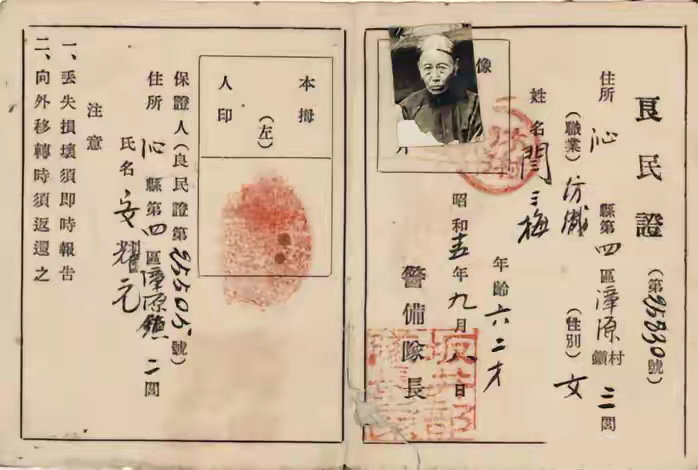 良民證(第95830號)
住所 沁縣第四區漳原村鎮三閭
(職業)紡織 (性別)女
姓名閆三梅 年齡六二才
像片
昭和五年九月八日
警備隊長
本拇
(左)
人印
保證人(良民證第95505號)
住所 沁縣第四區漳源鎮二閭
氏名 安耀元
注意
一、丢失損壞須即時報告
二、向外移轉時須返還之